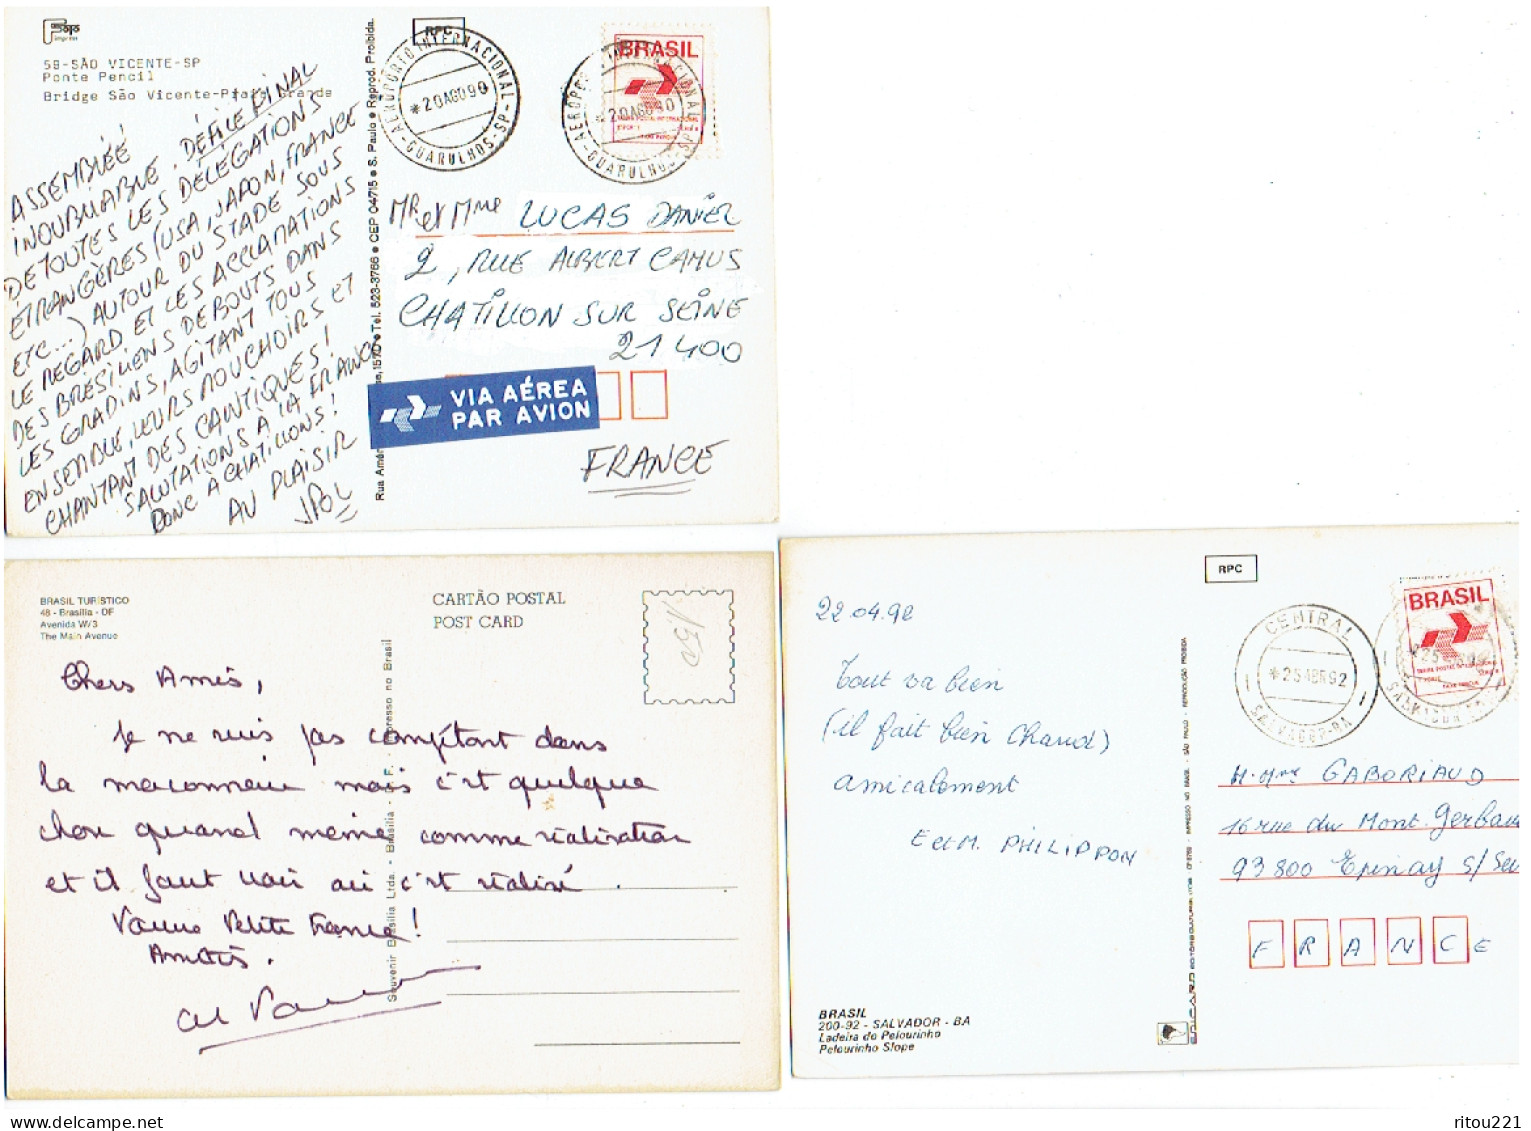 Foto
58-SÃO VICENTE-SP
Ponte Pencil
Bridge São Vicente-Praia Grande
ASSEMBLÉE
INOUBLIABLE. DÉFILÉ FINAL
DE TOUTES LES DÉLÉGATIONS
ÉTRANGÈRES (USA, JAPON, FRANCE
ETC...) AUTOUR DU STADE SOUS
LE REGARD ET LES ACCLAMATIONS
DES BRÉSILIENS DEBOUTS DANS
LES GRADINS, AGITANT TOUS
ENSEMBLE, LEURS MOUCHOIRS ET
CHANTANT DES CANTIQUES!
SALUTATIONS A LA FRANCE
DONC A CHATILLONS!
AU PLAISIR
JPOL
Rua Amér 1570 • Tel. 523-3766 • CEP 04715 • S. Paulo • Reprod. Proibida.
RPC
AEROPORTO INTERNACIONAL-SP-
*20AGO90
-GUARULHOS-
BRASIL
*20AGO90
MR et Mme LUCAS DANIEL
2, RUE ALBERT CAMUS
CHATILLON SUR SEINE
21 400
VIA AÉREA
PAR AVION
FRANCE
BRASIL TURÍSTICO
48 - Brasília - DF
Avenida W/3
The Main Avenue
CARTÃO POSTAL
POST CARD
Chers Amis,
Je ne suis pas compétant dans
la maconnerie mais c'est quelque
chose quand même comme réalisation
et il faut voir où c'est réalisé.
Pauvre Petite France!
Amitiés.
Souvenir Brasília Ltda. - Brasília - D F. Impresso no Brasil
RPC
22.04.92
Tout va bien
(il fait bien chaud)
amicalement
E et M. PHILIPPON
CENTRAL
*25ABR92
SALVADOR-BA
BRASIL
M. Mme GABORIAUD
16 rue du Mont. Gerbau
93 800 Epinay s/Sei
F R A N C E
BRASIL
200-92 - SALVADOR - BA
Ladeira do Pelourinho
Pelourinho Slope
ritou221